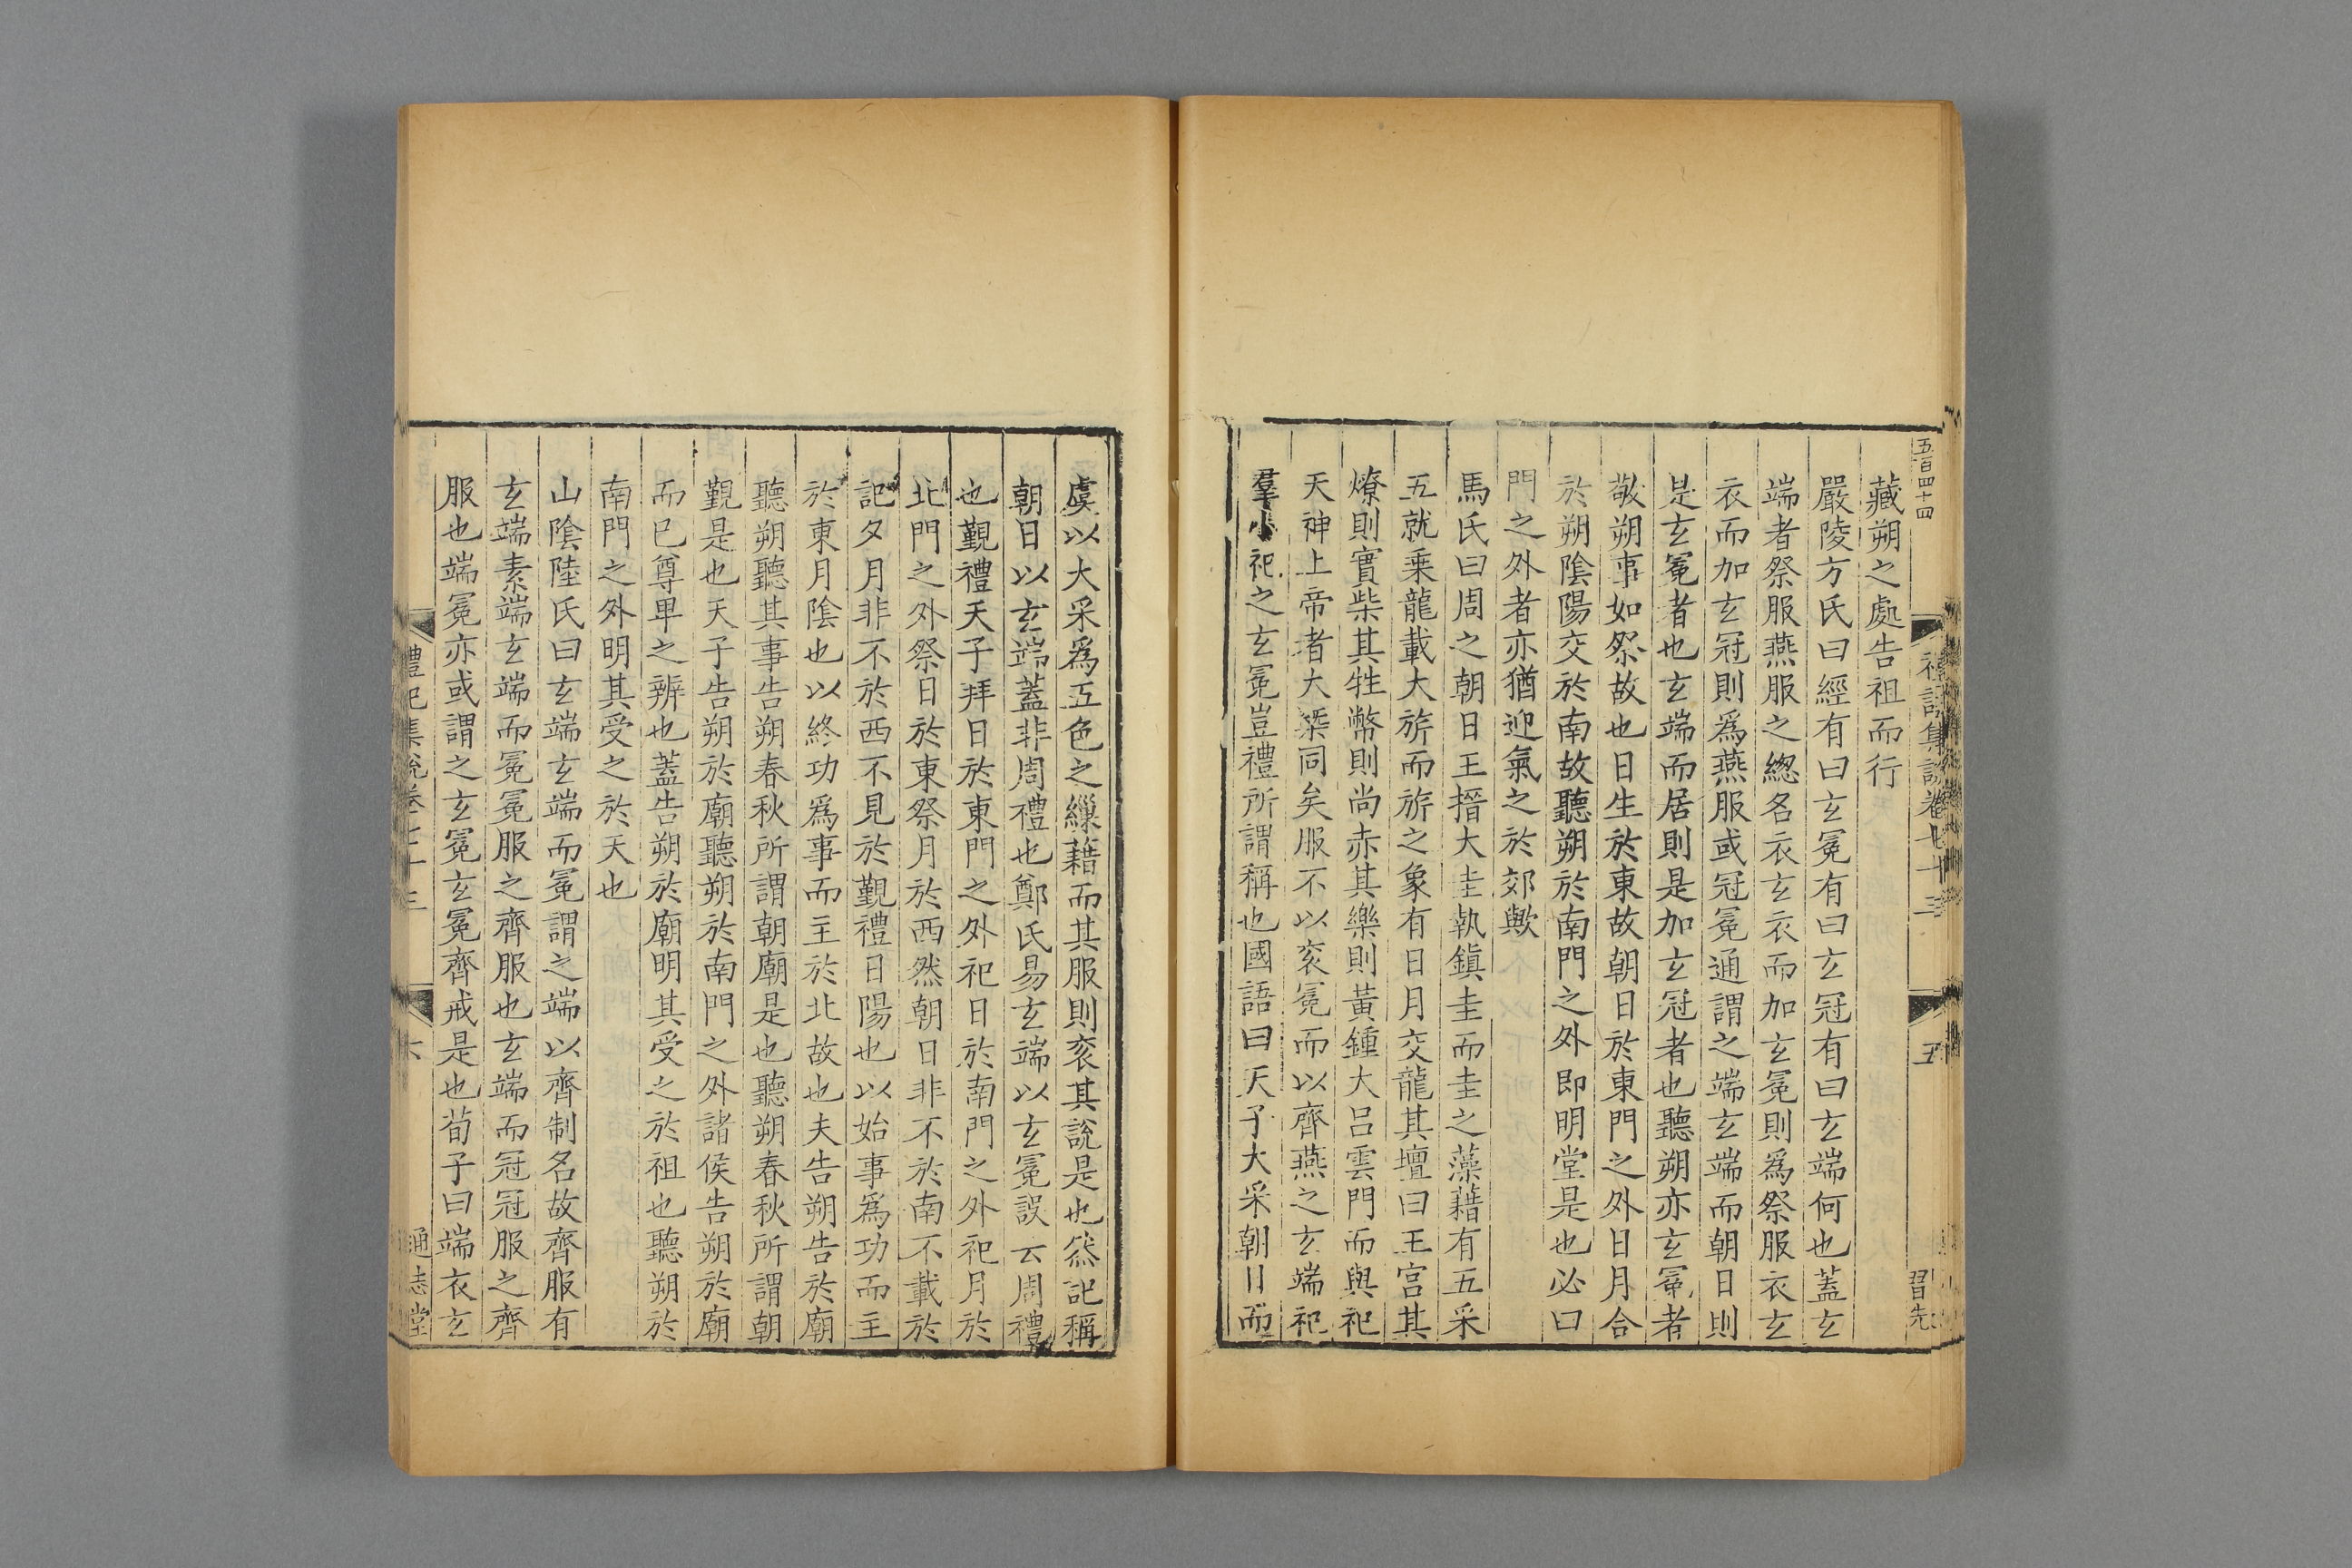 五百四十四
禮記集說卷七十三
五
習先
藏朔之處告祖而行
嚴陵方氏曰經有曰玄冕有曰玄冠有曰玄端何也蓋玄
端者祭服燕服之緫名衣玄衣而加玄冕則為祭服衣玄
衣而加玄冠則為燕服或冠冕通謂之端玄端而朝日則
是玄冕者也玄端而居則是加玄冠者也聽朔亦玄冕者
敬朔事如祭故也日生於東故朝日於東門之外日月合
於朔陰陽交於南故聽朔於南門之外即明堂是也必曰
門之外者亦猶迎氣之於郊歟
馬氏曰周之朝日王搢大圭執鎮圭而圭之藻藉有五采
五就乗龍載大旂而旂之象有日月交龍其壇曰王宫其
燎則實柴其牲幣則尚赤其樂則黃鍾大呂雲門而與祀
天神上帝者大槩同矣服不以衮冕而以齊燕之玄端祀
羣小祀之玄冕豈禮所謂稱也國語曰天子大采朝日而
虞以大采爲五色之繅藉而其服則衮其說是也然記稱
朝日以玄端蓋非周禮也鄭氏易玄端以玄冕誤云周禮
也覲禮天子拜日於東門之外祀日於南門之外祀月於
北門之外祭日於東祭月於西然朝日非不於南不載於
記夕月非不於西不見於覲禮日陽也以始事爲功而主
於東月陰也以終功爲事而主於北故也夫告朔告於廟
聽朔聽其事告朔春秋所謂朝廟是也聽朔春秋所謂朝
覲是也天子告朔於廟聽朔於南門之外諸侯告朔於廟
而已尊卑之辨也蓋告朔於廟明其受之於祖也聽朔於
南門之外明其受之於天也
山陰陸氏曰玄端玄端而冕謂之端以齊制名故齊服有
玄端素端玄端而冕冕服之齊服也玄端而冠冠服之齊
服也端冕亦或謂之玄冕玄冕齊戒是也荀子曰端衣玄
禮記集說卷七十三
六
通志堂